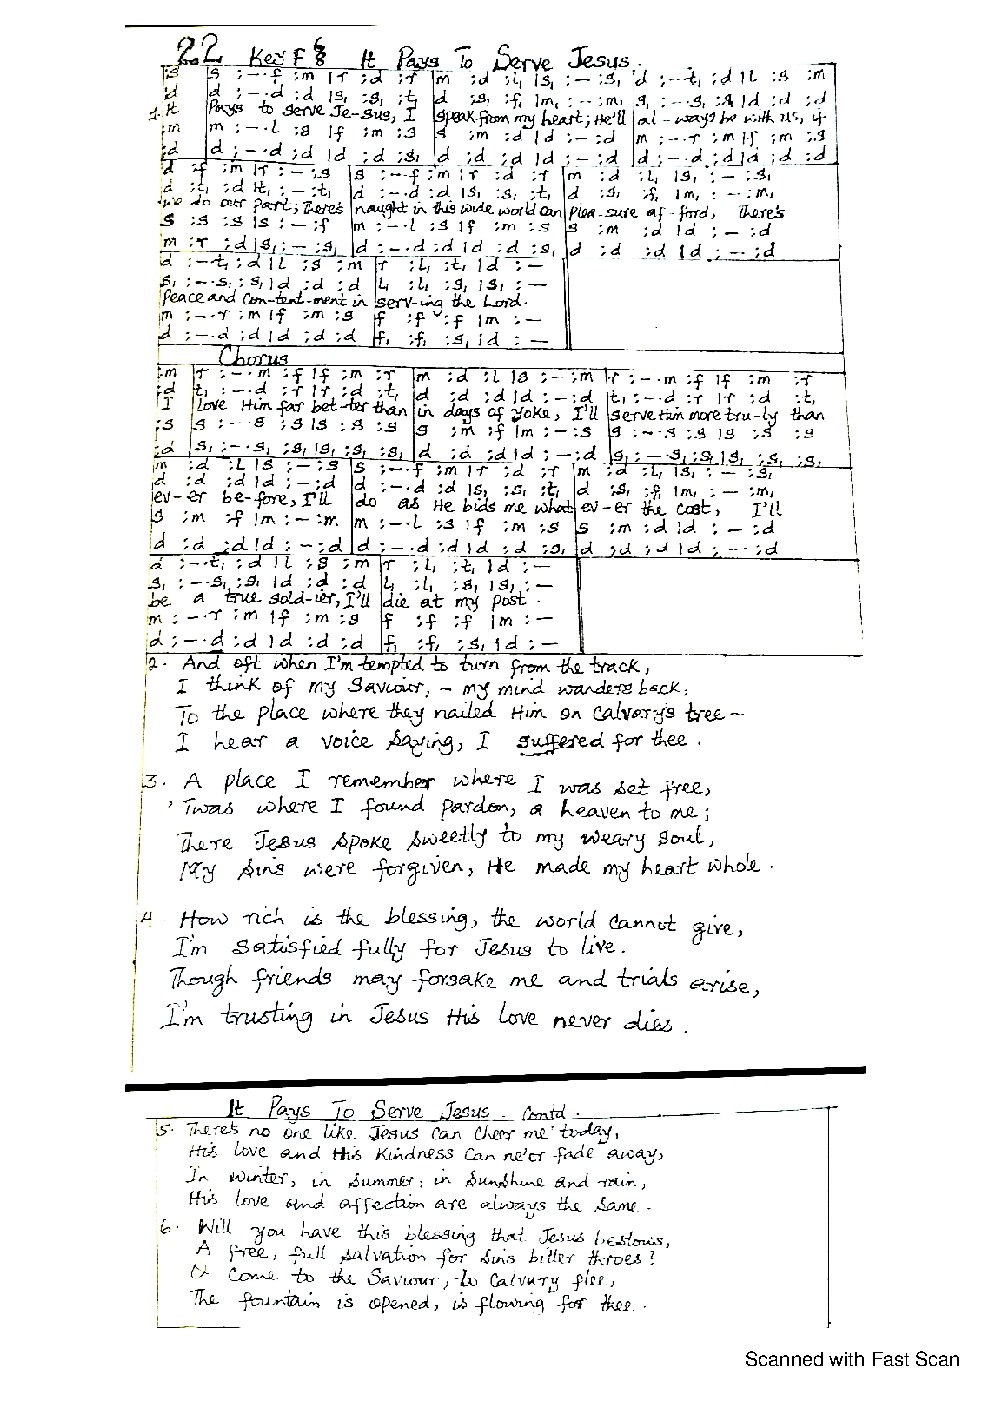 22 Key F 6/8 It Pays To Serve Jesus.
:s | s :-.f :m | r :d :r | m :d :l, | s, :- :s, | d :-.t, :d | l :s :m
:d | d :-.d :d | s, :s, :t, | d :s, :f, | m, :- :m, | s, :-.s, :s, | d :d :d
1. It Pays to serve Je-sus, I speak from my heart; He'll al-ways be with us, if
:m | m :-.l :s | f :m :s | s :m :d | d :- :d | m :-.r :m | f :m :s
:d | d :-.d :d | d :d :s, | d :d :d | d :- :d | d :-.d :d | d :d :d
d :f :m | r :- :s | s :-.f :m | r :d :r | m :d :l, | s, :- :s,
d :t, :d | t, :- :t, | d :-.d :d | s, :s, :t, | d :s, :f, | m, :- :m,
we do our part; There's naught in this wide world can plea-sure af-ford, There's
s :s :s | s :- :f | m :-.l :s | f :m :s | s :m :d | d :- :d
m :r :d | s, :- :s, | d :-.d :d | d :d :s, | d :d :d | d :- :d
d :-.t, :d | l :s :m | r :l, :t, | d :-
s, :-.s, :s, | d :d :d | l, :l, :s, | s, :-
Peace and con-tent-ment in serv-ing the Lord.
m :-.r :m | f :m :s | f :f :f | m :-
d :-.d :d | d :d :d | f, :f, :s, | d :-
Chorus
:m | r :-.m :f | f :m :r | m :d :l | s :- :m | r :-.m :f | f :m :r
:d | t, :-.d :r | r :d :t, | d :d :d | d :- :d | t, :-.d :r | r :d :t,
I love Him far bet-ter than in days of yoke, I'll serve him more tru-ly than
:s | s :-.s :s | s :s :s | s :m :f | m :- :s | s :-.s :s | s :s :s
:d | s, :-.s, :s, | s, :s, :s, | d :d :d | d :- :d | s, :-.s, :s, | s, :s, :s,
m :d :l | s :- :s | s :-.f :m | r :d :r | m :d :l, | s, :- :s,
d :d :d | d :- :d | d :-.d :d | s, :s, :t, | d :s, :f, | m, :- :m,
ev-er be-fore, I'll do as He bids me what ev-er the cost, I'll
s :m :f | m :- :m | m :-.l :s | f :m :s | s :m :d | d :- :d
d :d :d | d :- :d | d :-.d :d | d :d :s, | d :d :d | d :- :d
d :-.t, :d | l :s :m | r :l, :t, | d :-
s, :-.s, :s, | d :d :d | l, :l, :s, | s, :-
be a true sold-ier, I'll die at my post.
m :-.r :m | f :m :s | f :f :f | m :-
d :-.d :d | d :d :d | f, :f, :s, | d :-
2. And oft when I'm tempted to turn from the track,
I think of my Saviour, - my mind wanders back;
To the place where they nailed Him on Calvary's tree -
I hear a voice saying, I suffered for thee.
3. A place I remember where I was set free,
'Twas where I found pardon, a heaven to me;
There Jesus spoke sweetly to my weary soul,
My sins were forgiven, He made my heart whole.
4. How rich is the blessing, the world cannot give,
I'm satisfied fully for Jesus to live.
Though friends may forsake me and trials arise,
I'm trusting in Jesus His love never dies.
It Pays To Serve Jesus - Contd.
5. There's no one like Jesus can cheer me today,
His love and His Kindness Can ne'er fade away,
In winter, in summer; in Sunshine and rain,
His love and affection are always the same.
6. Will you have this blessing that Jesus bestows,
A free, full salvation for sins bitter throes?
O come to the Saviour, to Calvary flee,
The fountain is opened, is flowing for thee.
Scanned with Fast Scan